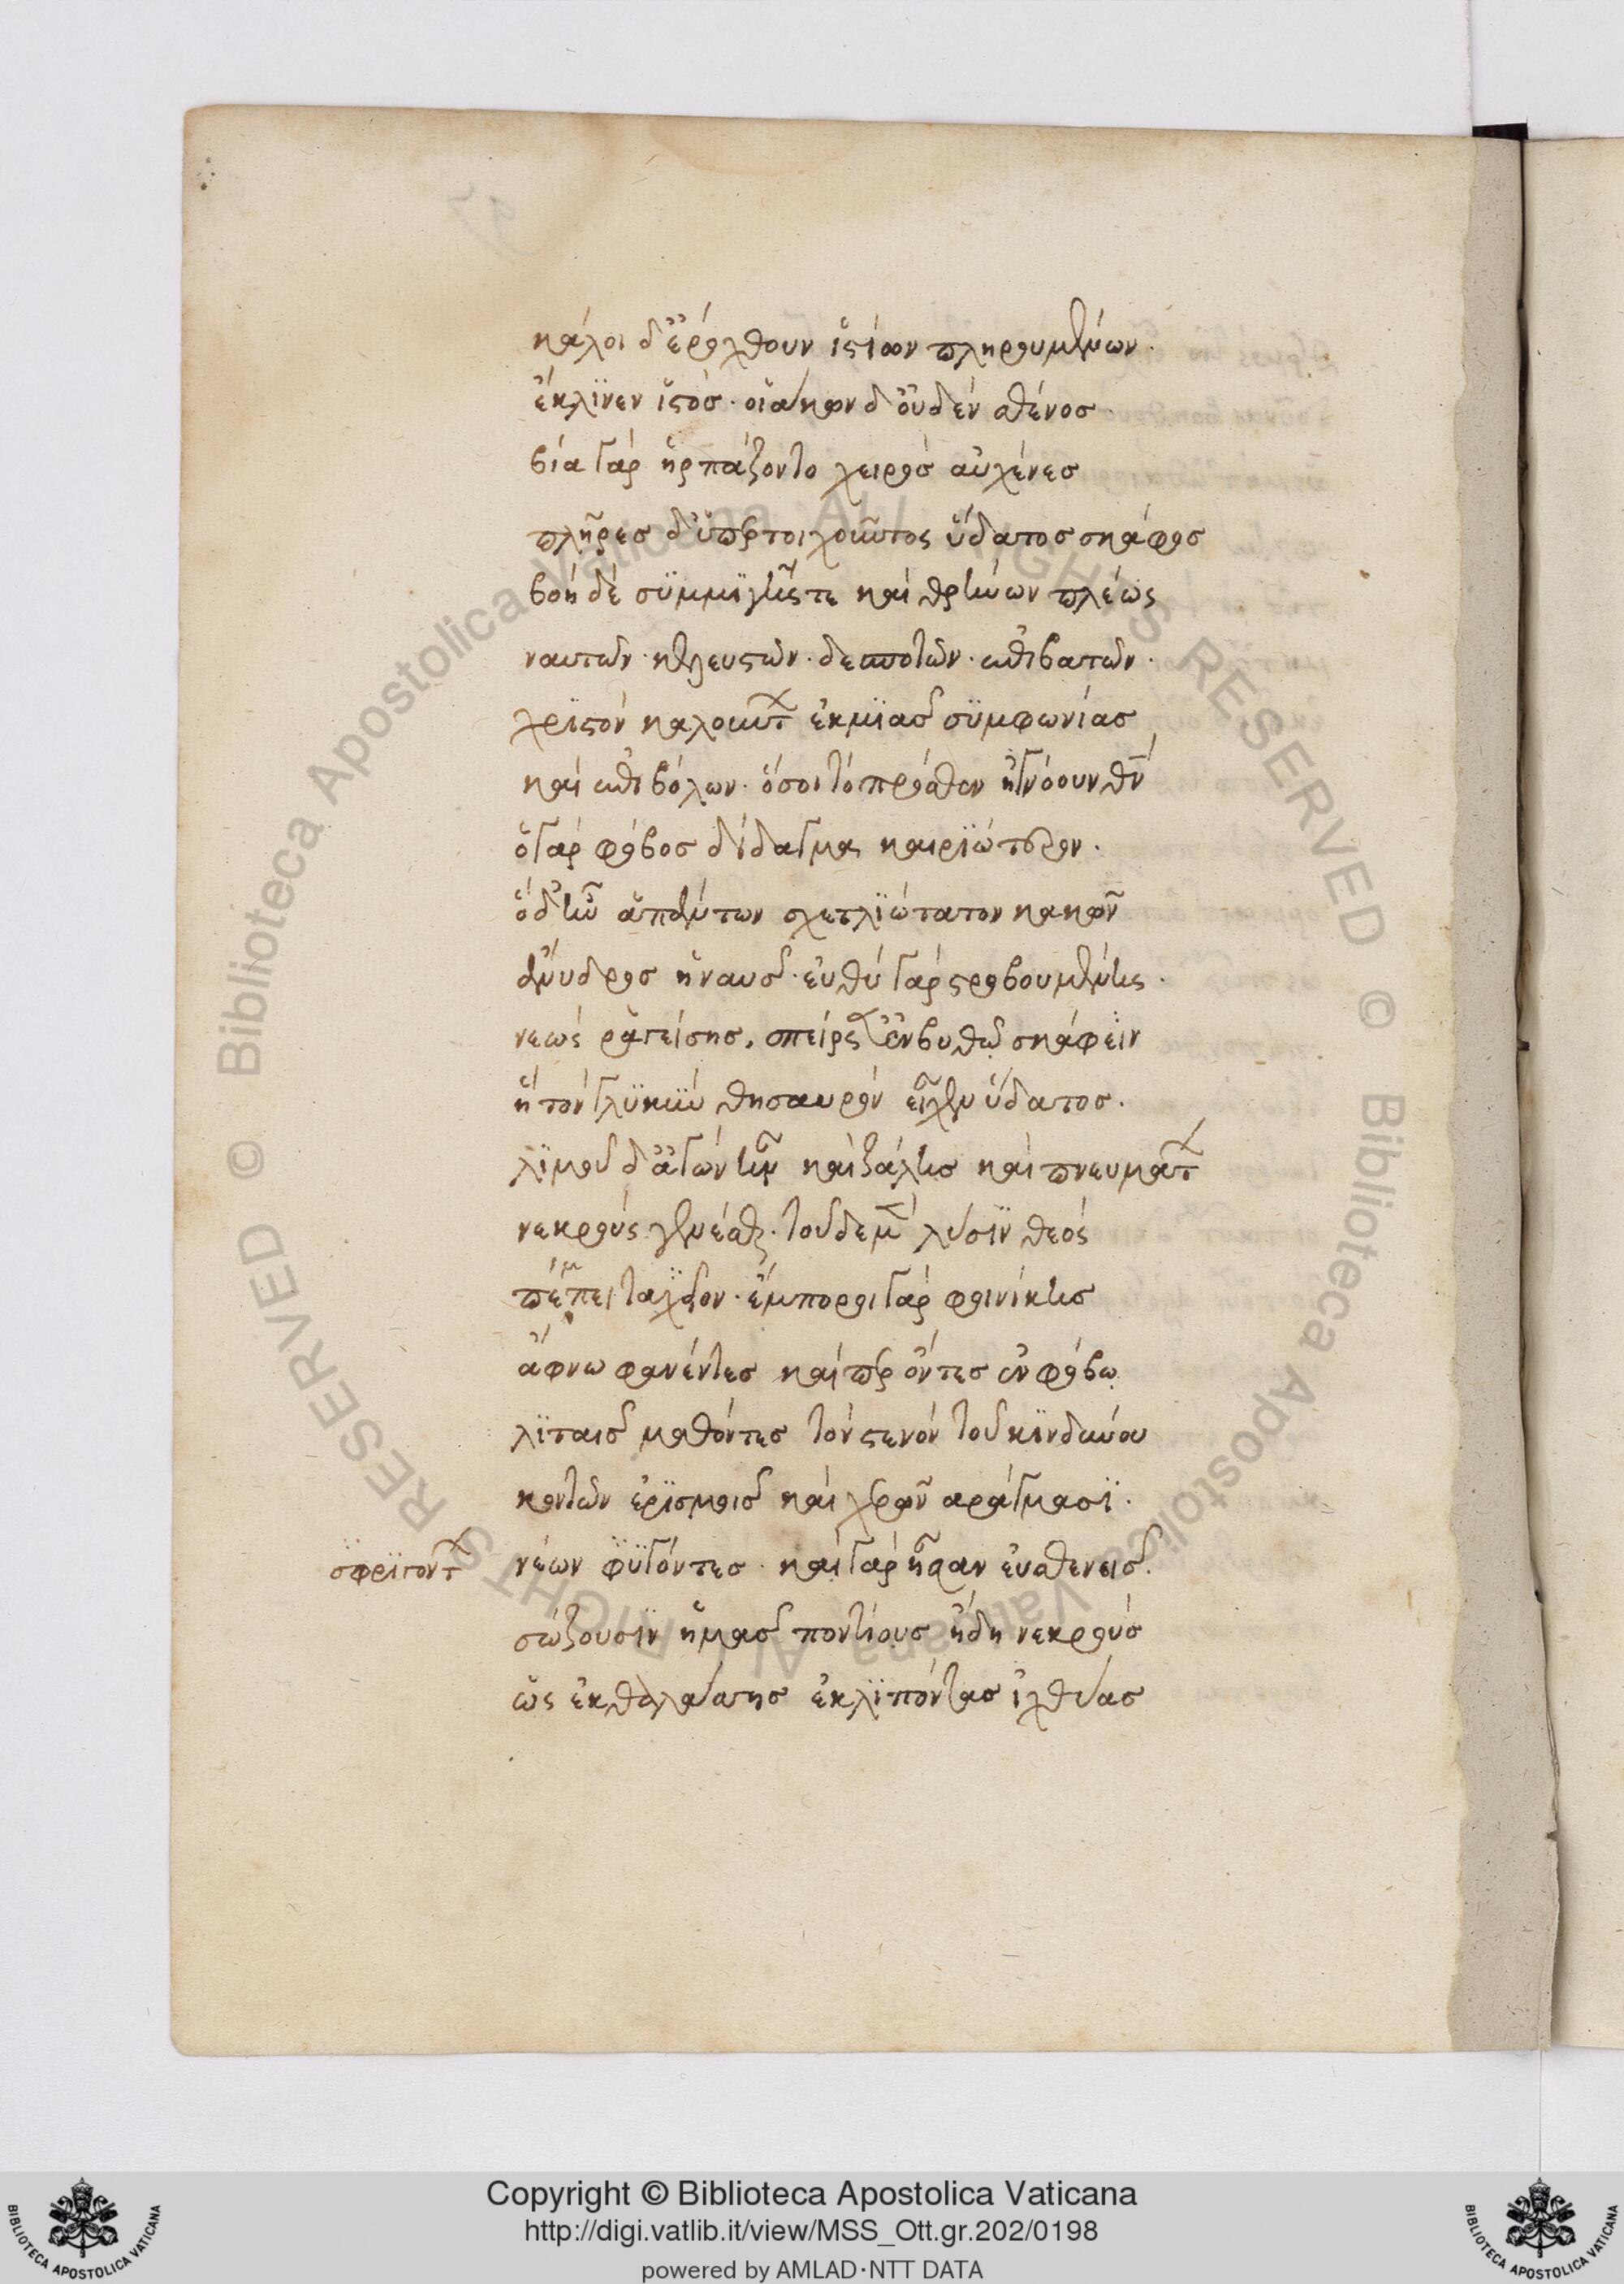 κάλοι δ' ἐρρόχθουν ἱστίων πληρουμένων.
ἔκλινεν ἱστός. οἰάκων δ' οὐδὲν σθένος.
βία γὰρ ἡρπάζοντο χειρὸς αὐχένες
πλῆρες δ' ὑπερτοιχοῦντος ὕδατος σκάφος
βοὴ δὲ συμμιγής τε καὶ θρήνων πλέως
ναυτῶν. κελευστῶν. δεσποτῶν. ἐπιβατῶν.
χριστὸν καλούντων ἐκ μιᾶς συμφωνίας
καὶ ἐπιβόλων. ὅσοι τὸ πρόσθεν ἠγνόουν θν
ὁ γὰρ φόβος δίδαγμα καιριώτερον.
ὃ δ' ἦν ἁπάντων σχετλιώτατον κακῶν
ἄνυδρος ἡ ναῦς. εὐθὺ γὰρ στροβουμένης.
νεὼς ῥαγείσης, σπείρεται ἐν βυθῷ σκάφειν
ἣ τὸν γλυκὺν θησαυρὸν εἶχεν ὕδατος.
λιμοῦ δ' ἀγὼν ἦν καὶ ζάλης καὶ πνευμάτων
νεκροὺς γενέσθαι. τοῦδέ μοι λύσιν θεὸς
πέμπει ταχεῖαν. ἔμποροι γὰρ φοίνικες
ἄφνω φανέντες καίπερ ὄντες ἐν φόβῳ
λιταῖς μαθόντες τὸν στενὸν τοῦ κινδύνου
κοντῶν ἐρεισμοῖς καὶ χερῶν ἀράγμασι.
σφριγόντων νέων φυγόντες. καὶ γὰρ ἦσαν εὐσθενεῖς.
σώζουσιν ἡμᾶς ποντίους ἤδη νεκροὺς
ὡς ἐκ θαλάσσης ἐκλιπόντας ἰχθύας
Copyright © Biblioteca Apostolica Vaticana
http://digi.vatlib.it/view/MSS_Ott.gr.202/0198
powered by AMLAD·NTT DATA
BIBLIOTECA APOSTOLICA VATICANA
BIBLIOTECA APOSTOLICA VATICANA